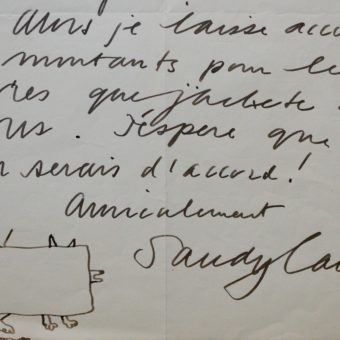 Alors je laisse acco
montants pour le
res que j'achete
us. J'éspère que
serais d'accord!
Amicalement
Sandy Ca